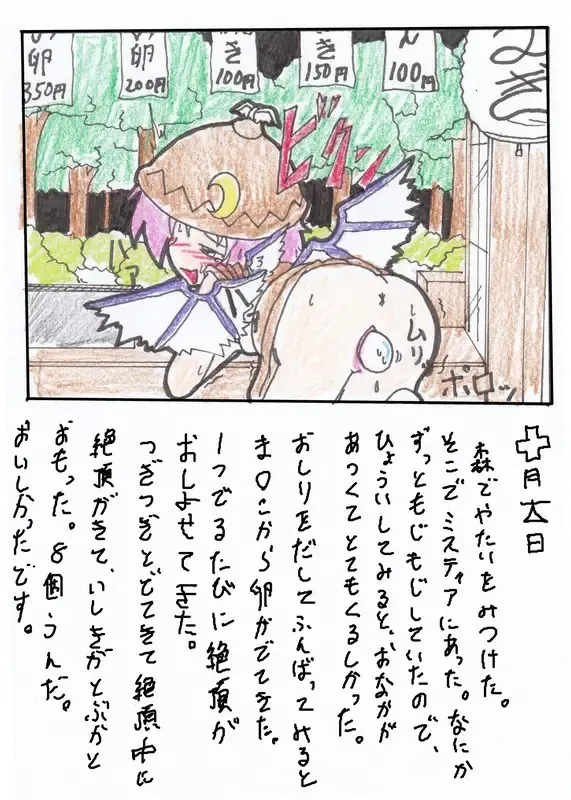 卵
350円
卵
200円
き
100円
き
150円
ん
100円
なぎ
ビクン
ハァ
ムリッ
ポロッ
十月大日
森でやたいをみつけた。
そこでミスティアにあった。なにか
ずっともじもじしていたので、
ひょういしてみると、おなかが
あつくてとてもくるしかった。
おしりをだしてふんばってみると
ま○こから卵がでてきた。
1つでるたびに絶頂が
おしよせてきた。
つぎつぎとでてきて絶頂中に
絶頂がきて、いしきがとぶかと
おもった。8個うんだ。
おいしかったです。